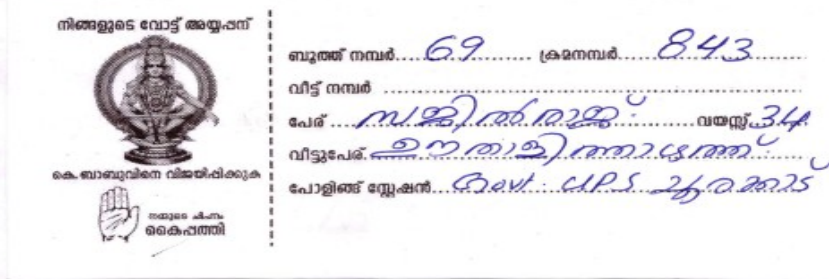 നിങ്ങളുടെ വോട്ട് അയ്യപ്പന്
കെ. ബാബുവിനെ വിജയിപ്പിക്കുക
നമ്മുടെ ചിഹ്നം
കൈപ്പത്തി
ബൂത്ത് നമ്പർ....69............ ക്രമനമ്പർ......843......
വീട്ട് നമ്പർ
പേര് ... വയസ്സ്..34
വീട്ടുപേര്
പോളിങ്ങ് സ്റ്റേഷൻ... Govt. UPS